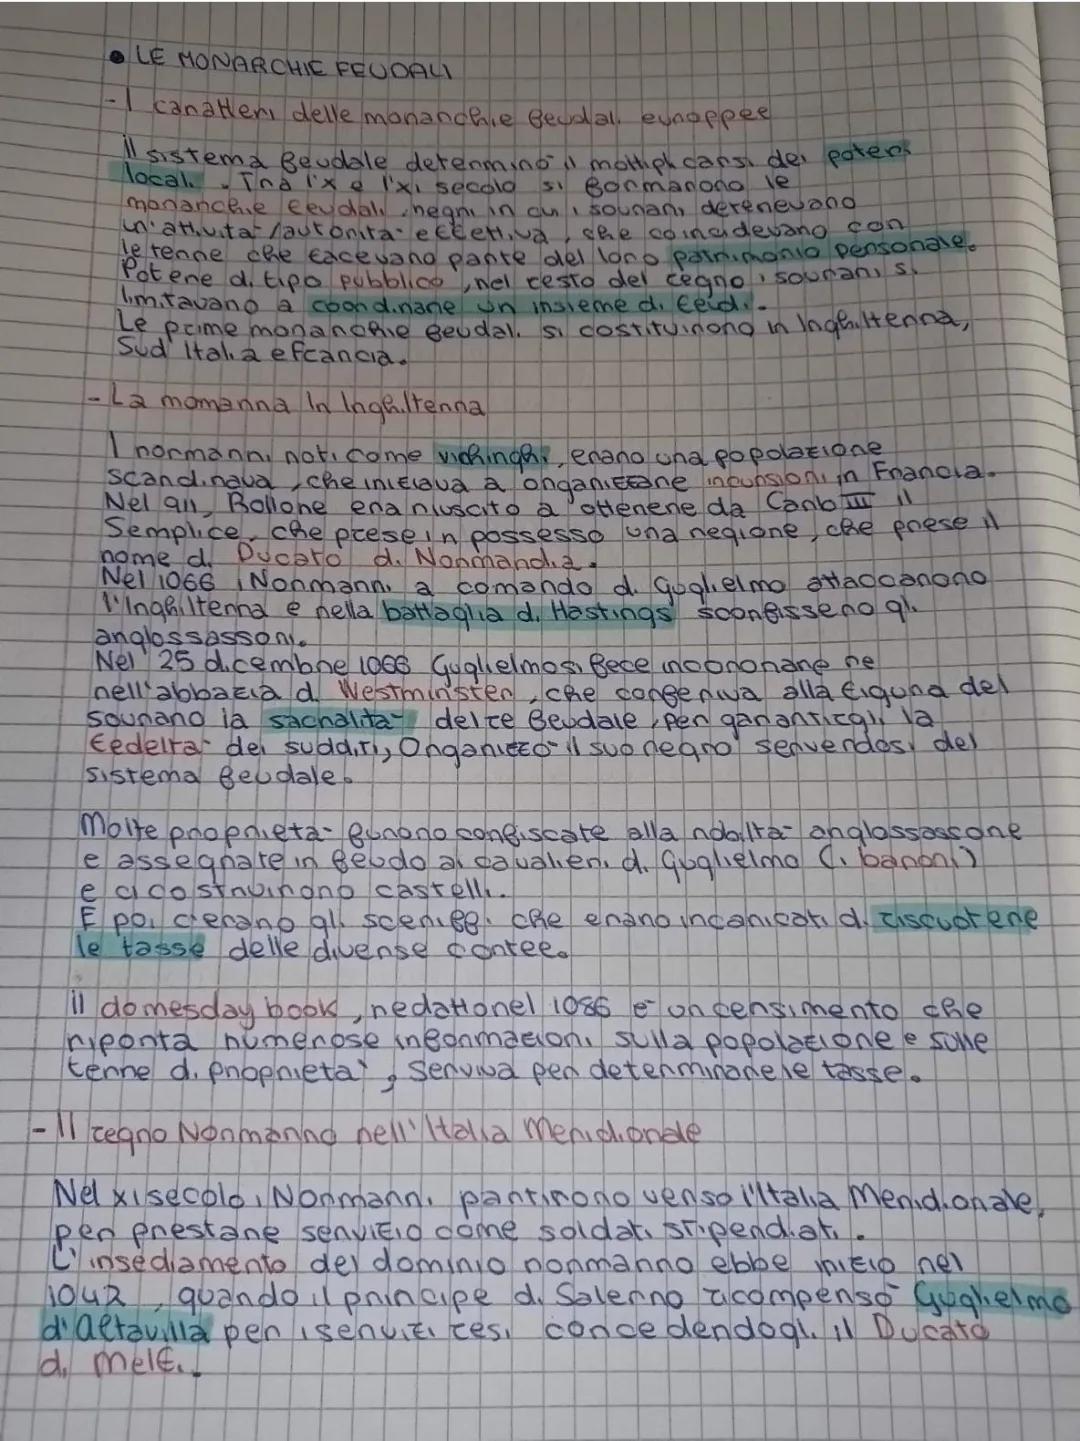 • LE MONARCHIE FEUDALI
- I caratteri delle monarchie feudali europpee
il sistema feudale determinò il moltiplicarsi dei poteri
locali. Tra l'x e l'xi secolo si formarono le
monarchie feudali, regni in cui i sovrani detenevano
un'attività/autorità effettiva, che coincidevano con
le terre che facevano parte del loro patrimonio personale.
Potere di tipo pubblico, nel resto del regno i sovrani si
limitavano a coordinare un insieme di feudi.
Le prime monarchie feudali si costituirono in Inghilterra,
Sud Italia e francia.
- La momanna in Inghilterra
I normanni noti come vichinghi, erano una popolazione
scandinava, che iniziava a organizzare incursioni in Francia.
Nel 911, Rollone era riuscito a ottenere da Carlo III il
Semplice, che prese in possesso una regione, che prese il
nome di Ducato di Normandia.
Nel 1066 i Normanni a comando di Guglielmo attaccarono
l'Inghilterra e nella battaglia di Hastings sconfissero gli
anglossassoni.
Nel 25 dicembre 1066 Guglielmo si fece incoronare re
nell'abbazia di Westminster, che conferiva alla figura del
sovrano la sacralità delre feudale, per garantirgli la
fedeltà dei sudditi, Organizzò il suo regno servendosi del
sistema feudale.
Molte proprietà furono confiscate alla nobiltà anglossassone
e assegnate in feudo ai cavalieri di Guglielmo (i baroni)
e ci costruirono castelli.
E poi c'erano gli sceriffi che erano incaricati di riscuotere
le tasse delle diverse contee.
il domesday book, redatto nel 1086 è un censimento che
riporta numerose informazioni sulla popolazione e sulle
terre di proprietà, serviva per determinare le tasse.
- Il regno Normanno nell'Italia Meridionale
Nel xi secolo i Normanni partirono verso l'Italia Meridionale,
per prestare servizio come soldati stipendiati.
L'insediamento del dominio normanno ebbe inizio nel
1042, quando il principe di Salerno ricompensò Guglielmo
d'altavilla per i servizi resi concedendogli il Ducato
di melfi.